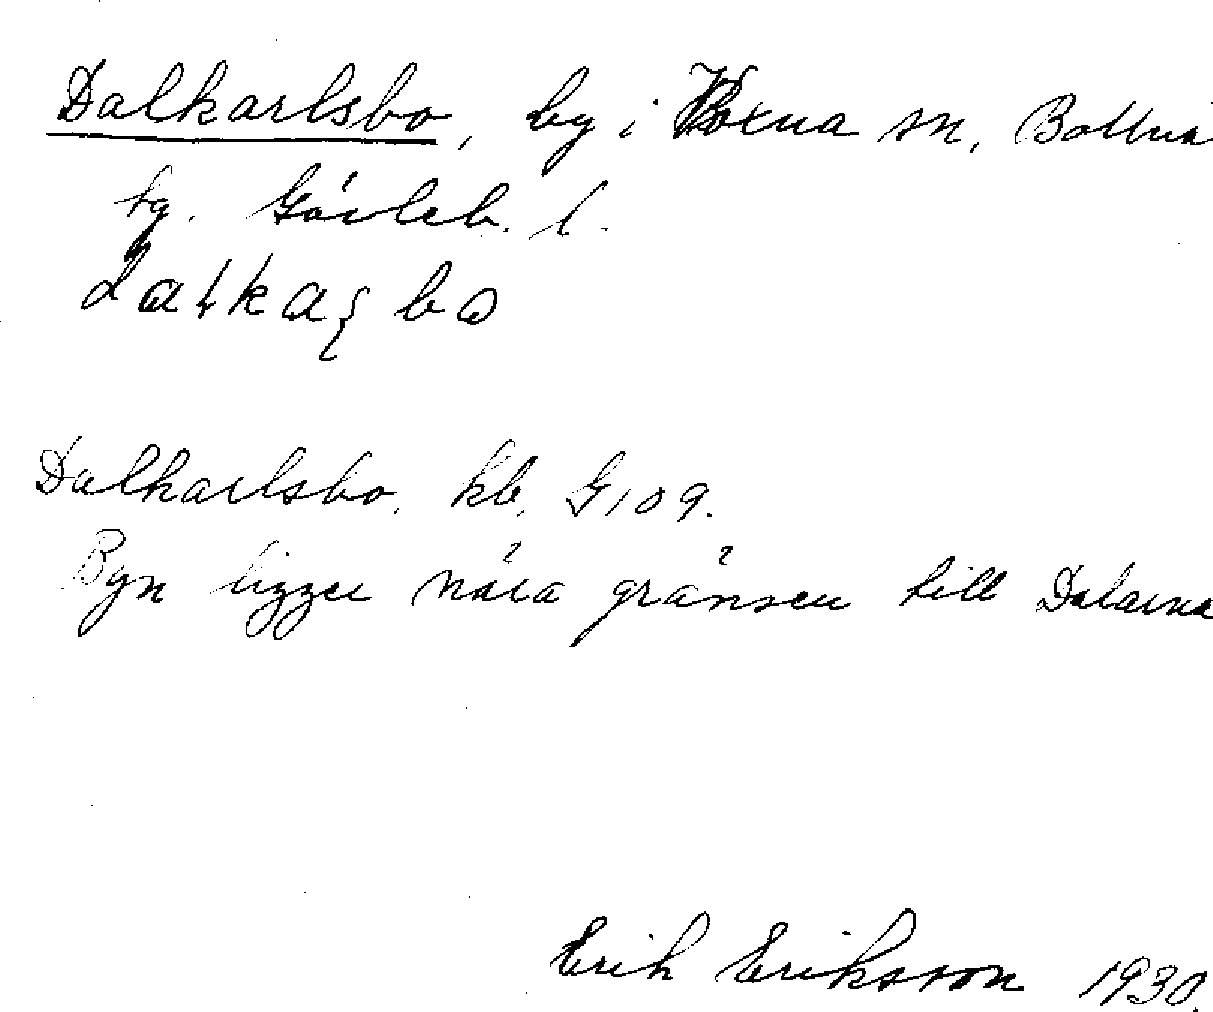 Dalkarlsbo, by i Voxna sn, Bollnäs
tg. Gävleb. l.
Dalkarlsbo. kb. G109.
Byn ligger nära gränsen till Dalarna
Erik Eriksson 1930.